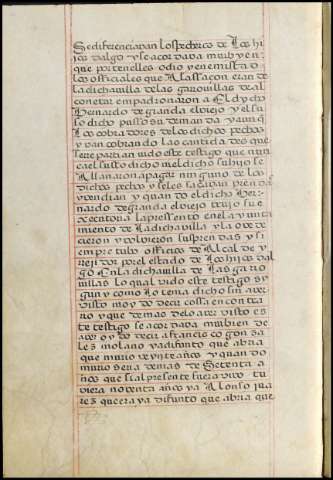 Se diferenciaban los pecheros de los hi
jos dalgo y se acordaba muy bien
que por tenelles odio y enemistad
los officiales que a la ssaçon eran de
la dicha villa de las garovillas de al
conetar empadronaron a El dicho
Hernando de granda el viejo y el su
so dicho pusso su demanda y aunque
Los cobradores de los dichos pechos
yvan cobrando las cantidades que
se repartian vido este testigo que nun
ca el susso dicho ni el dicho su hijo se
Allanaron a pagar ninguno de los
dichos pechos y se les sacavan prendas
y vendian y quando el dicho Her
nando de granda el viejo truxo su e
xecutoria la presento en el ayunta
miento de La dicha villa y la obede
cieron y volbieron sus prendas y si
empre tubo officios de Alcalde y
rrejidor por el estado de Los hijos dal
go En la dicha villa de Las garo
villas lo qual vido este testigo sy
gun y como Lo tiene dicho sin aber
visto ni oydo decir cossa en contra
rio y que demas de lo aber visto es
te testigo se acordava muy bien de
aber oydo decir a francisco gonsa
les molano ya difunto que abria
que murio veynte años y quando
murio seria de mas de Setenta a
ños que si al presente fuera vivo tu
viera noventa años y a Alonso jua
res que era ya difunto que abria que